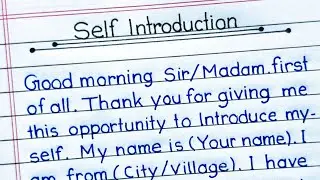 Self Introduction
Good morning Sir/Madam.first
of all. Thank you for giving me
this opportunity to Introduce my-
self. My name is (Your name). I
am from (City/Village). I have